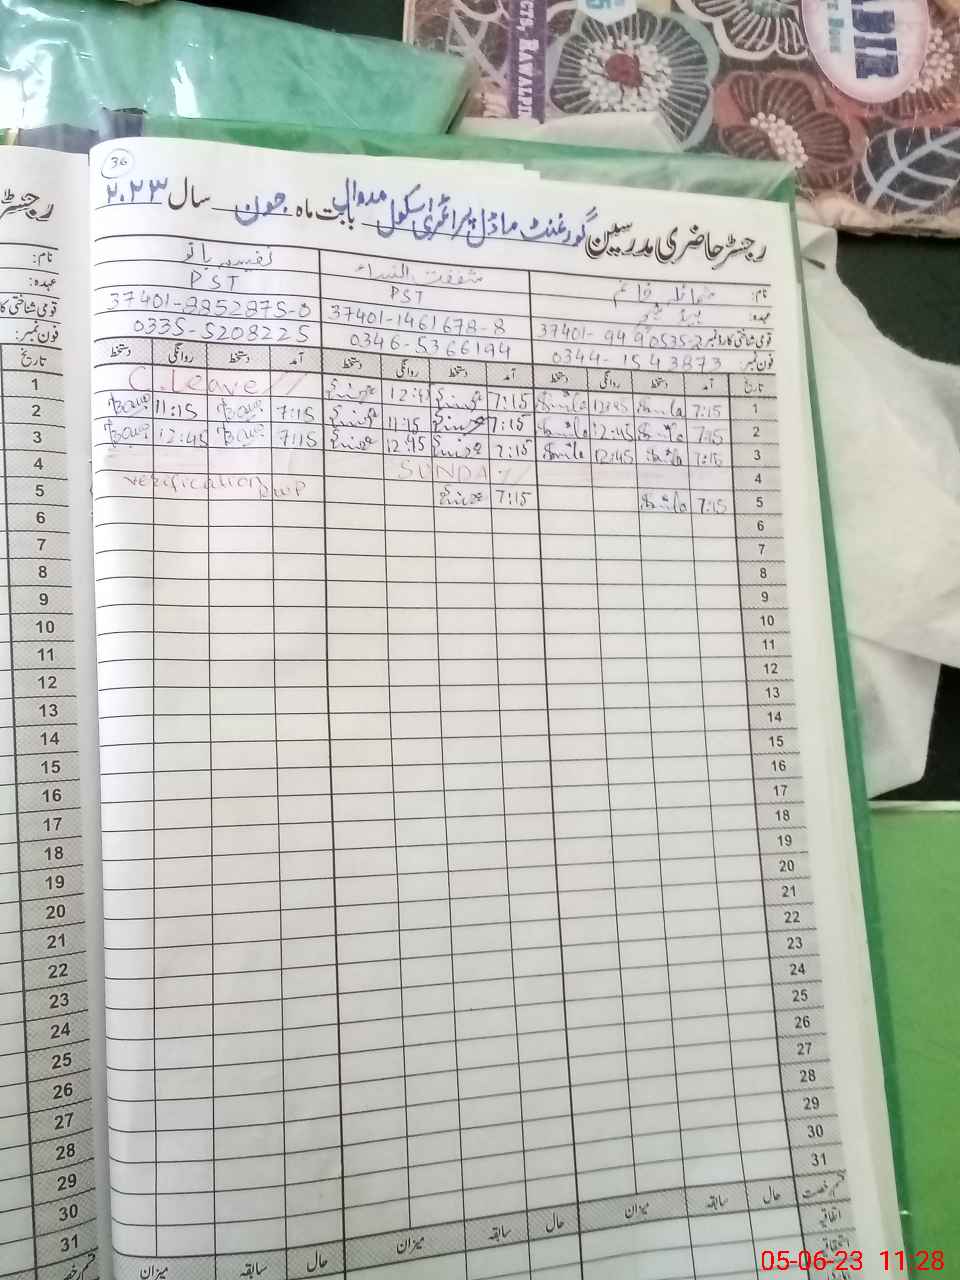 CTS, RAWALPIN
ADIR
36
رجسٹر حاضری مدرسین گورنمنٹ ماڈل پرائمری اسکول مدوال بابت ماہ جون سال ۲۰۲۳
نام: شفقت النساء نفیسہ بانو
عہدہ: PST PST
قومی شناختی کارڈ نمبر 37401-1461678-8 37401-8852875-0
فون نمبر: 0344-1543873 0346-5366194 0335-5208225
تاریخ آمد دستخط روانگی دستخط آمد دستخط روانگی دستخط آمد دستخط روانگی دستخط
1 7:15 12:45 7:15 12:45 C.Leave
2 7:15 12:45 7:15 11:45 7:15 11:15
3 7:15 12:45 7:15 12:45 7:15 12:45
4 SUNDAY
5 7:15 7:15 verification
6
7
8
9
10
11
12
13
14
15
16
17
18
19
20
21
22
23
24
25
26
27
28
29
30
31
قسم رخصت حال سابقہ میزان حال سابقہ میزان حال سابقہ میزان
اتفاقیہ
رجسٹر
نام:
عہدہ:
قومی شناختی کا
فون نمبر:
تاریخ
1
2
3
4
5
6
7
8
9
10
11
12
13
14
15
16
17
18
19
20
21
22
23
24
25
26
27
28
29
30
31
05-06-23 11:28